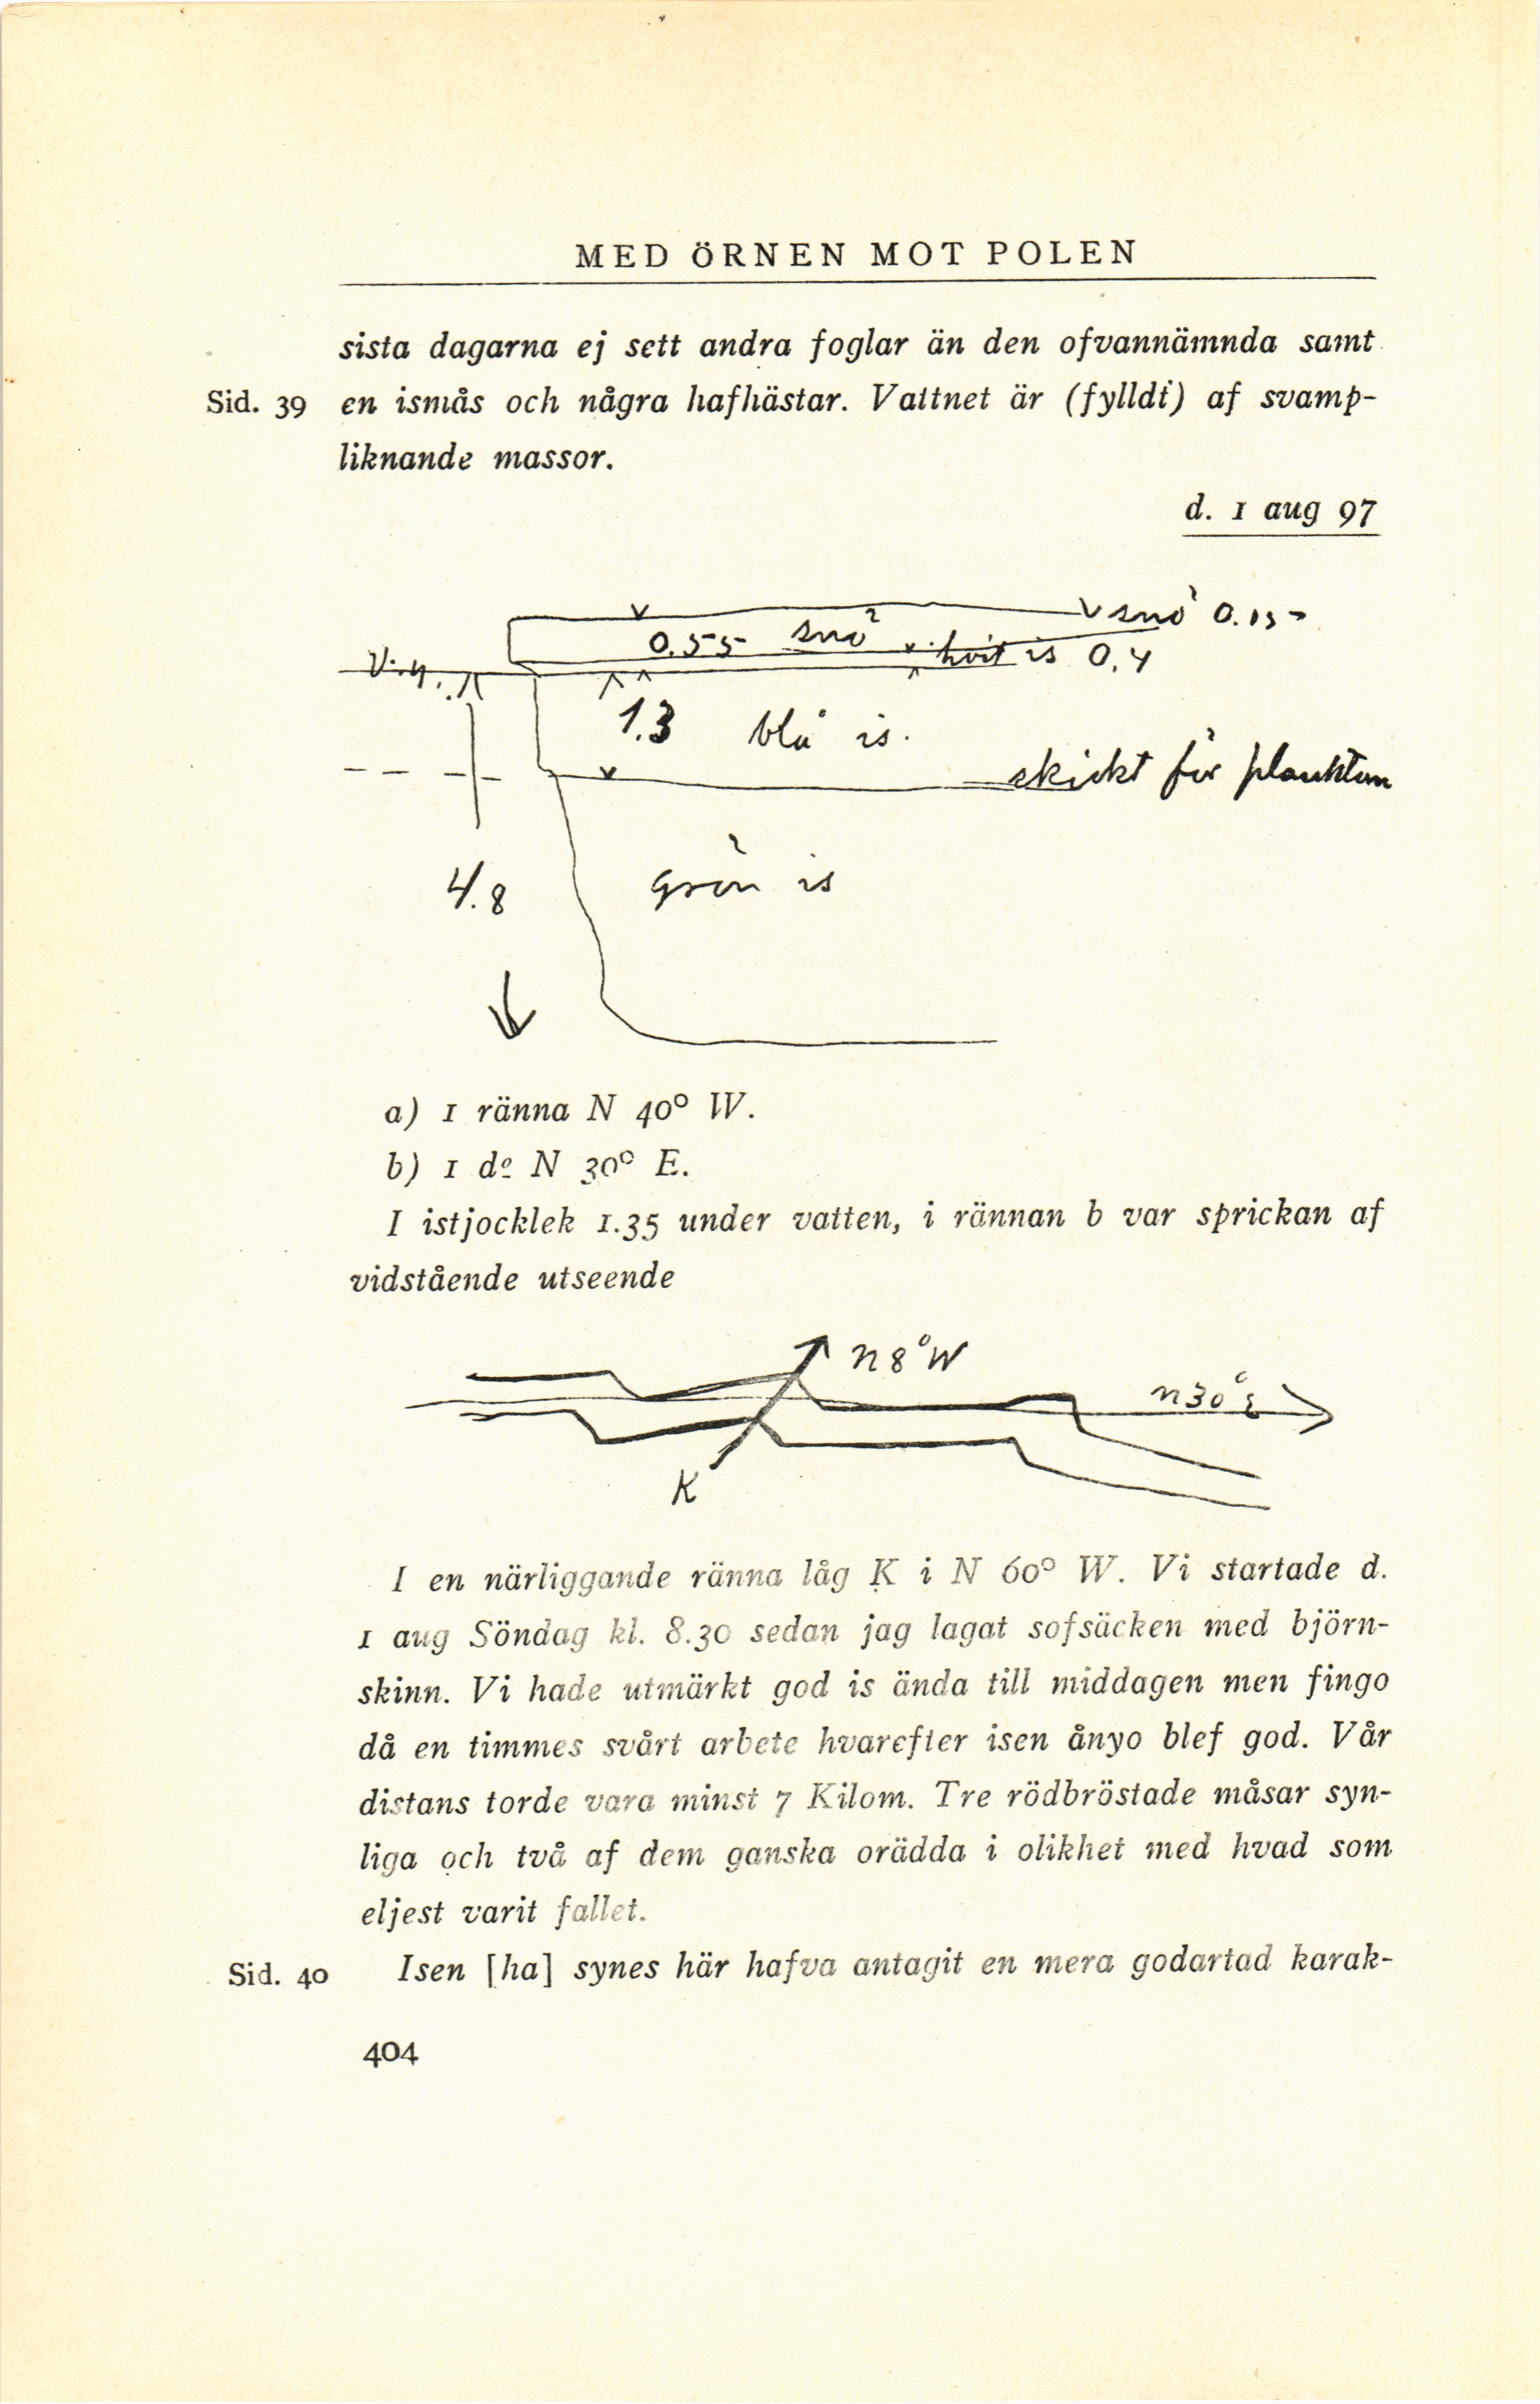 MED ÖRNEN MOT POLEN
sista dagarna ej sett andra foglar än den ofvannämnda samt
Sid. 39 en ismås och några hafhästar. Vattnet är (fylldt) af svamp-
liknande massor.
d. 1 aug 97
snö 0.15
0.55 snö
hvit is 0.4
V.y.
1.3 blå is.
skickt för plankton
4.8 Grön is
a) 1 ränna N 40° W.
b) 1 dº N 30° E.
I istjocklek 1.35 under vatten, i rännan b var sprickan af
vidstående utseende
N 8° W
N 30° E
K
I en närliggande ränna låg K i N 60° W. Vi startade d.
1 aug Söndag kl. 8.30 sedan jag lagat sofsäcken med björn-
skinn. Vi hade utmärkt god is ända till middagen men fingo
då en timmes svårt arbete hvarefter isen ånyo blef god. Vår
distans torde vara minst 7 Kilom. Tre rödbröstade måsar syn-
liga och två af dem ganska orädda i olikhet med hvad som
eljest varit fallet.
Sid. 40 Isen [ha] synes här hafva antagit en mera godartad karak-
404